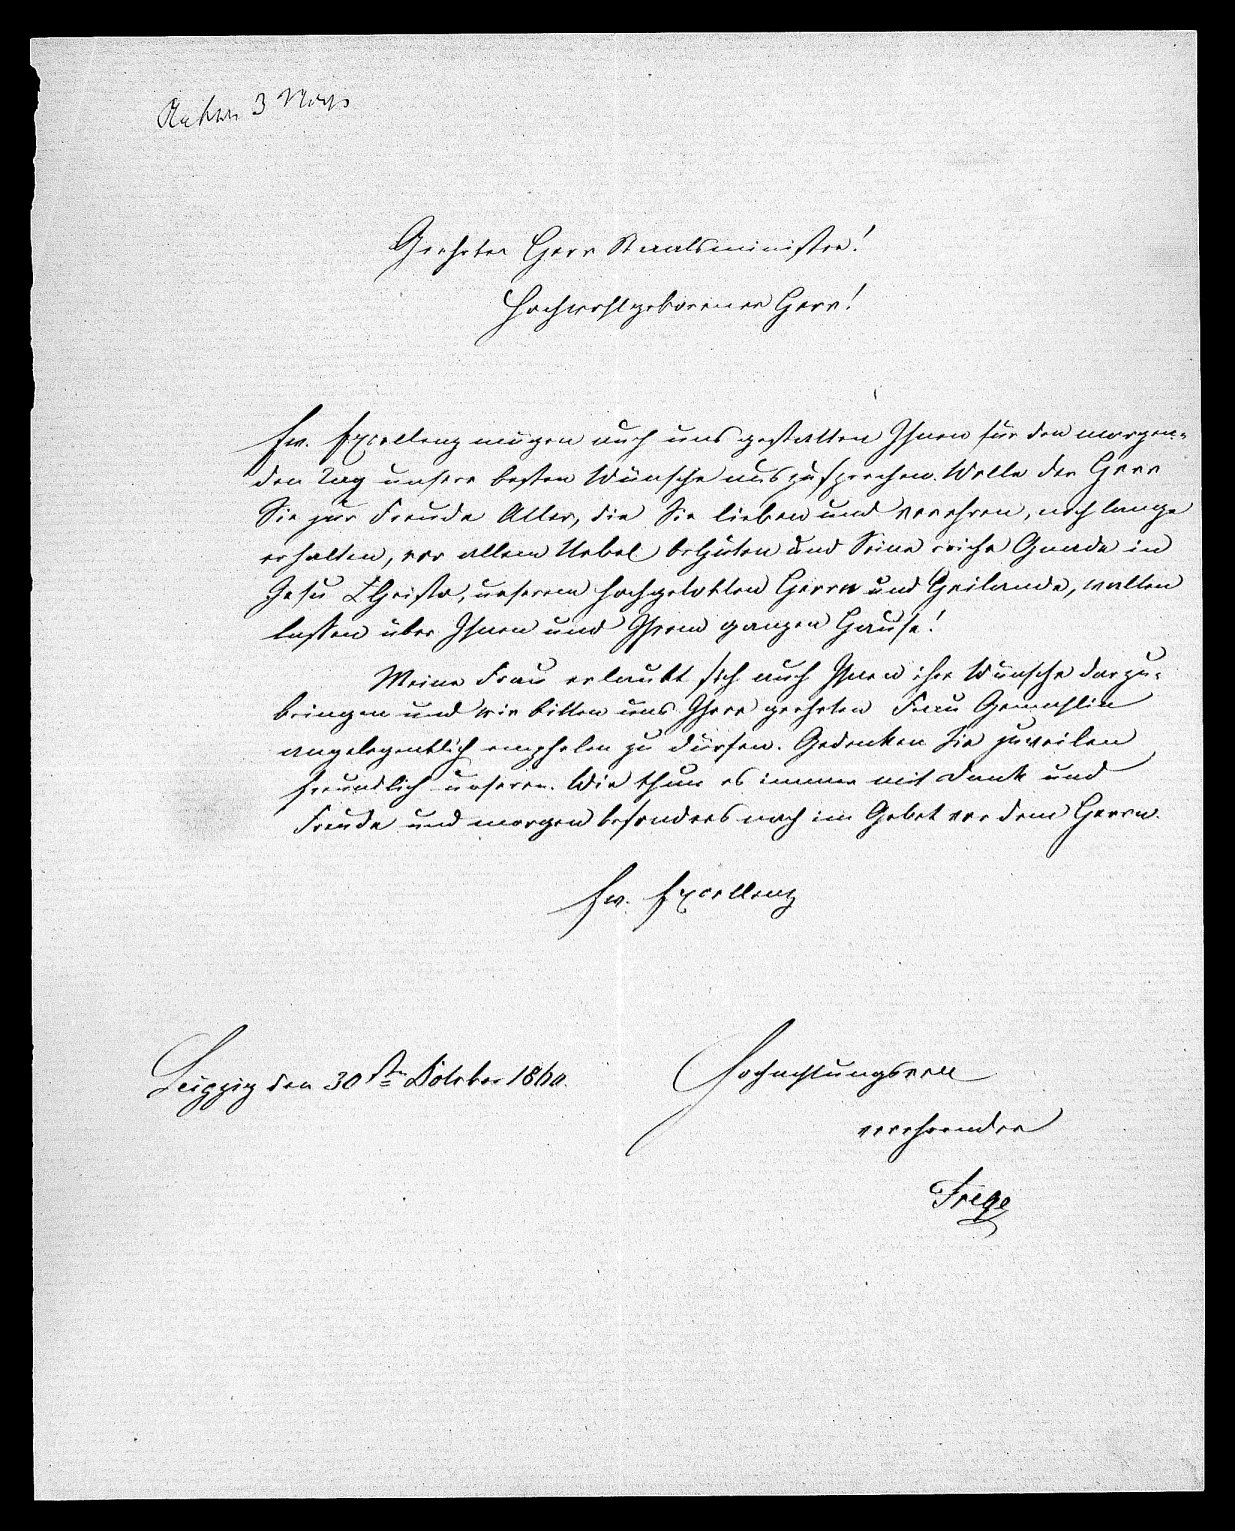 3 Nov
Geehrter Herr Staatsminister!
Hochwohlgeborener Herr!
Ew. Excellenz mögen auch uns gestatten Ihnen für den morgen-
den Tag unsere besten Wünsche auszusprechen. Wolle der Herr
Sie zur Freude Aller, die Sie lieben und verehren, noch lange
erhalten, vor allem Uebel behüten und Seine reiche Gnade in
Jesu Christo, unserem hochgelobten Herrn und Heilande, walten
lassen über Ihnen und Ihrem ganzen Hause!
Meine Frau erlaubt sich auch Ihnen ihre Wünsche darzu-
bringen und wir bitten uns Ihrer geehrten Frau Gemahlin
angelegentlich empfelen zu dürfen. Gedenken Sie zuweilen
freundlich unserer. Wir thun es immer mit Dank und
Freude und morgen besonders noch im Gebet vor dem Herrn.
Ew. Excellenz
Leipzig den 30sten October 1860.
Hochachtungsvoll
verehrender
Frege